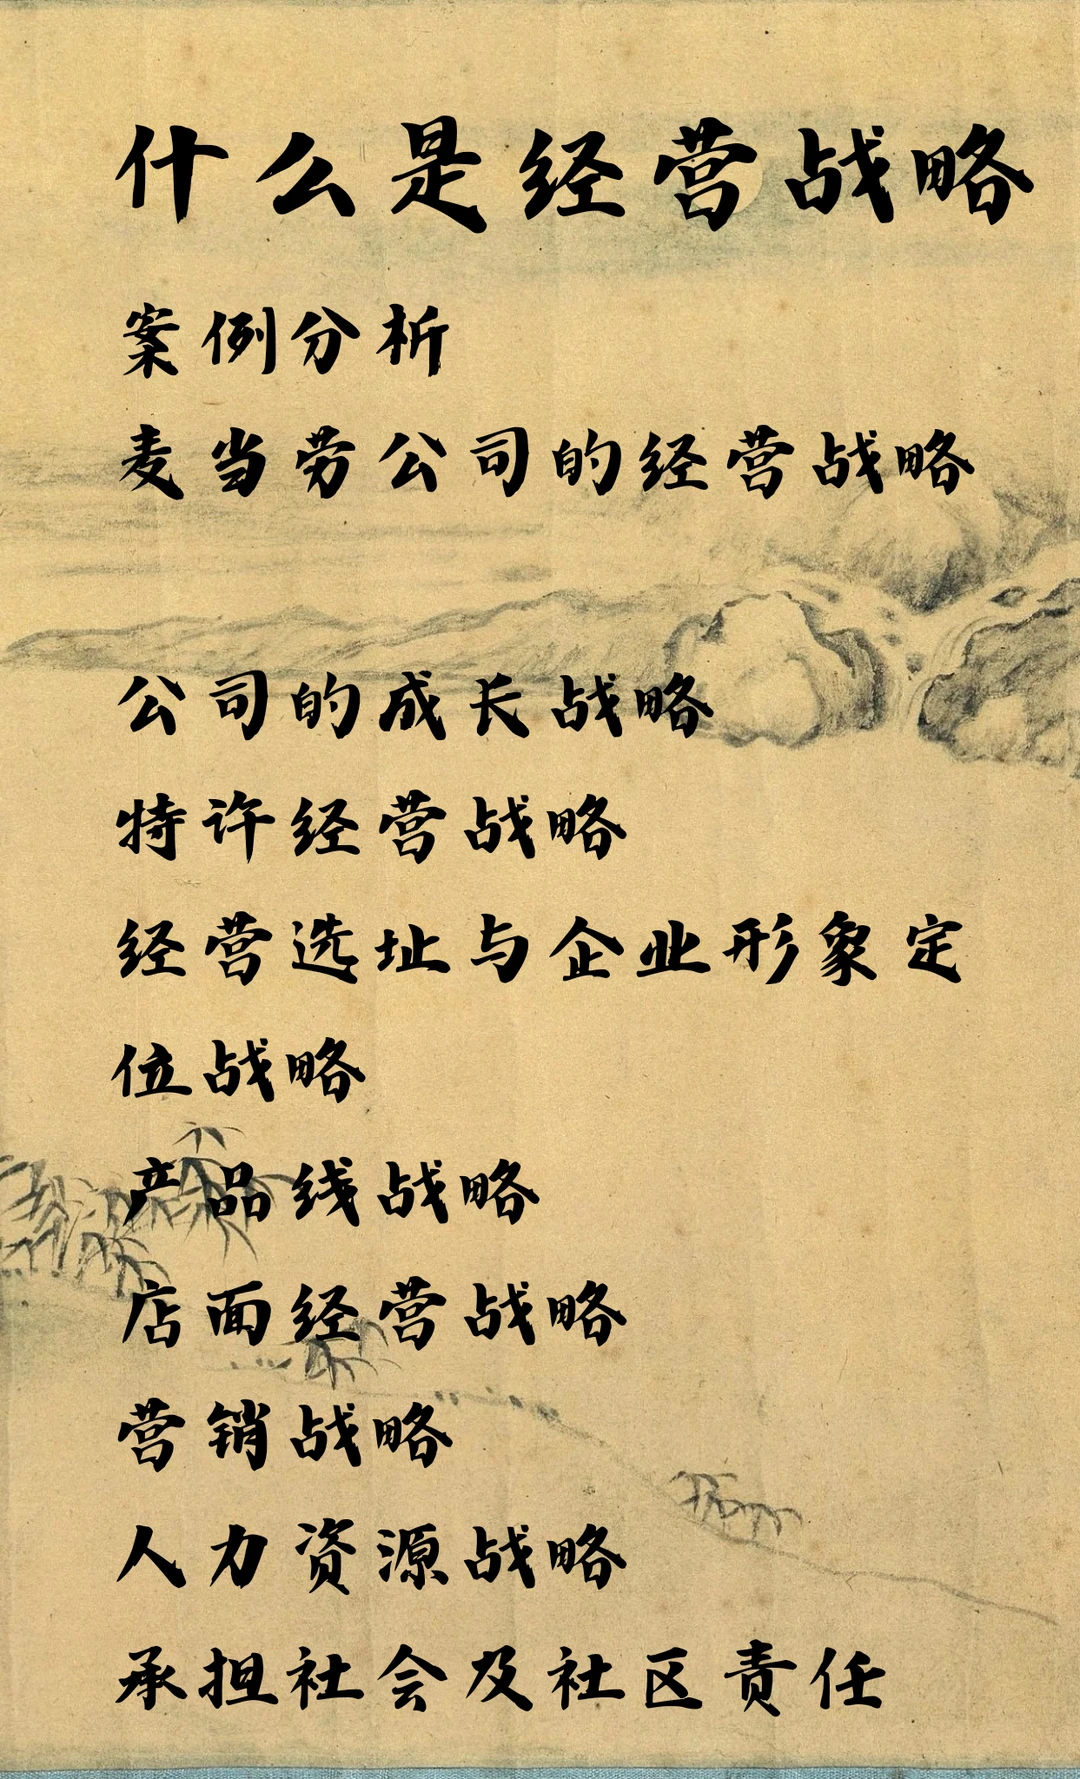 什么是经营战略
案例分析
麦当劳公司的经营战略
公司的成长战略
特许经营战略
经营选址与企业形象定
位战略
产品线战略
店面经营战略
营销战略
人力资源战略
承担社会及社区责任